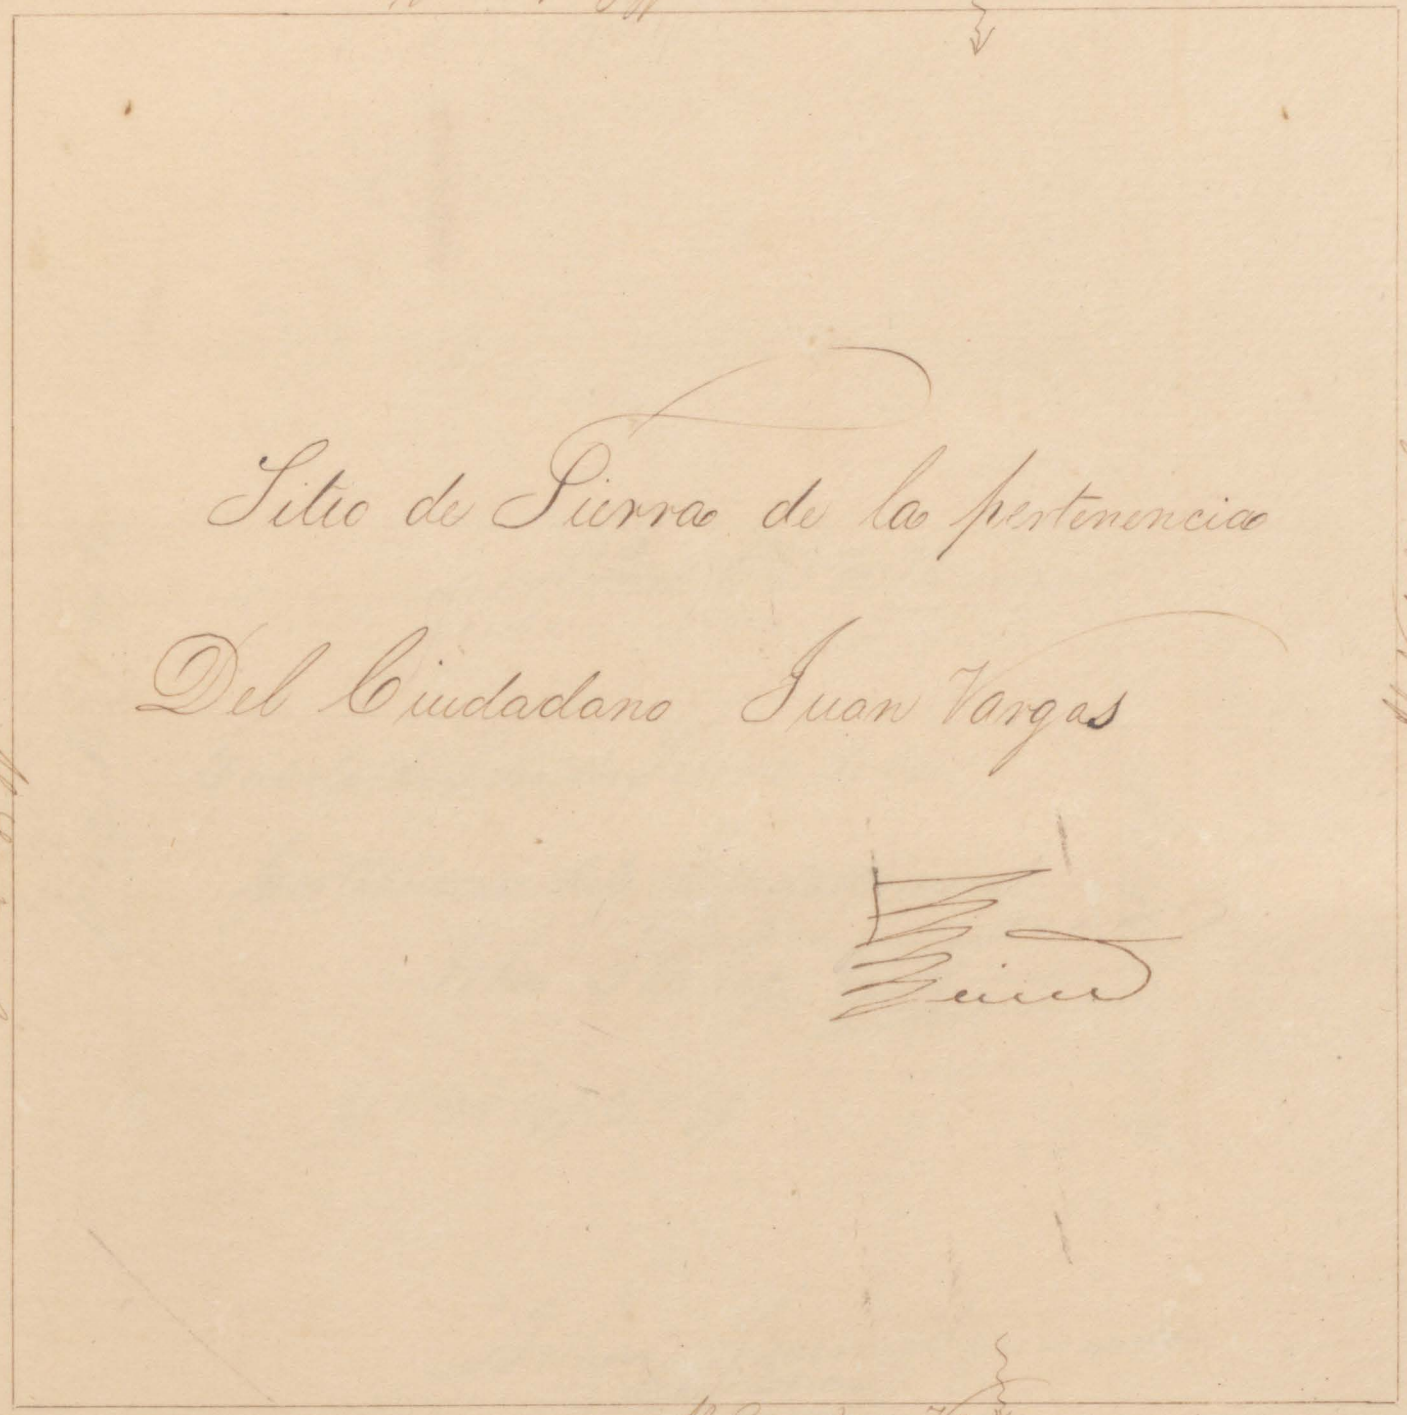 Sitio de Tierra de la pertenencia
Del Ciudadano Juan Vargas